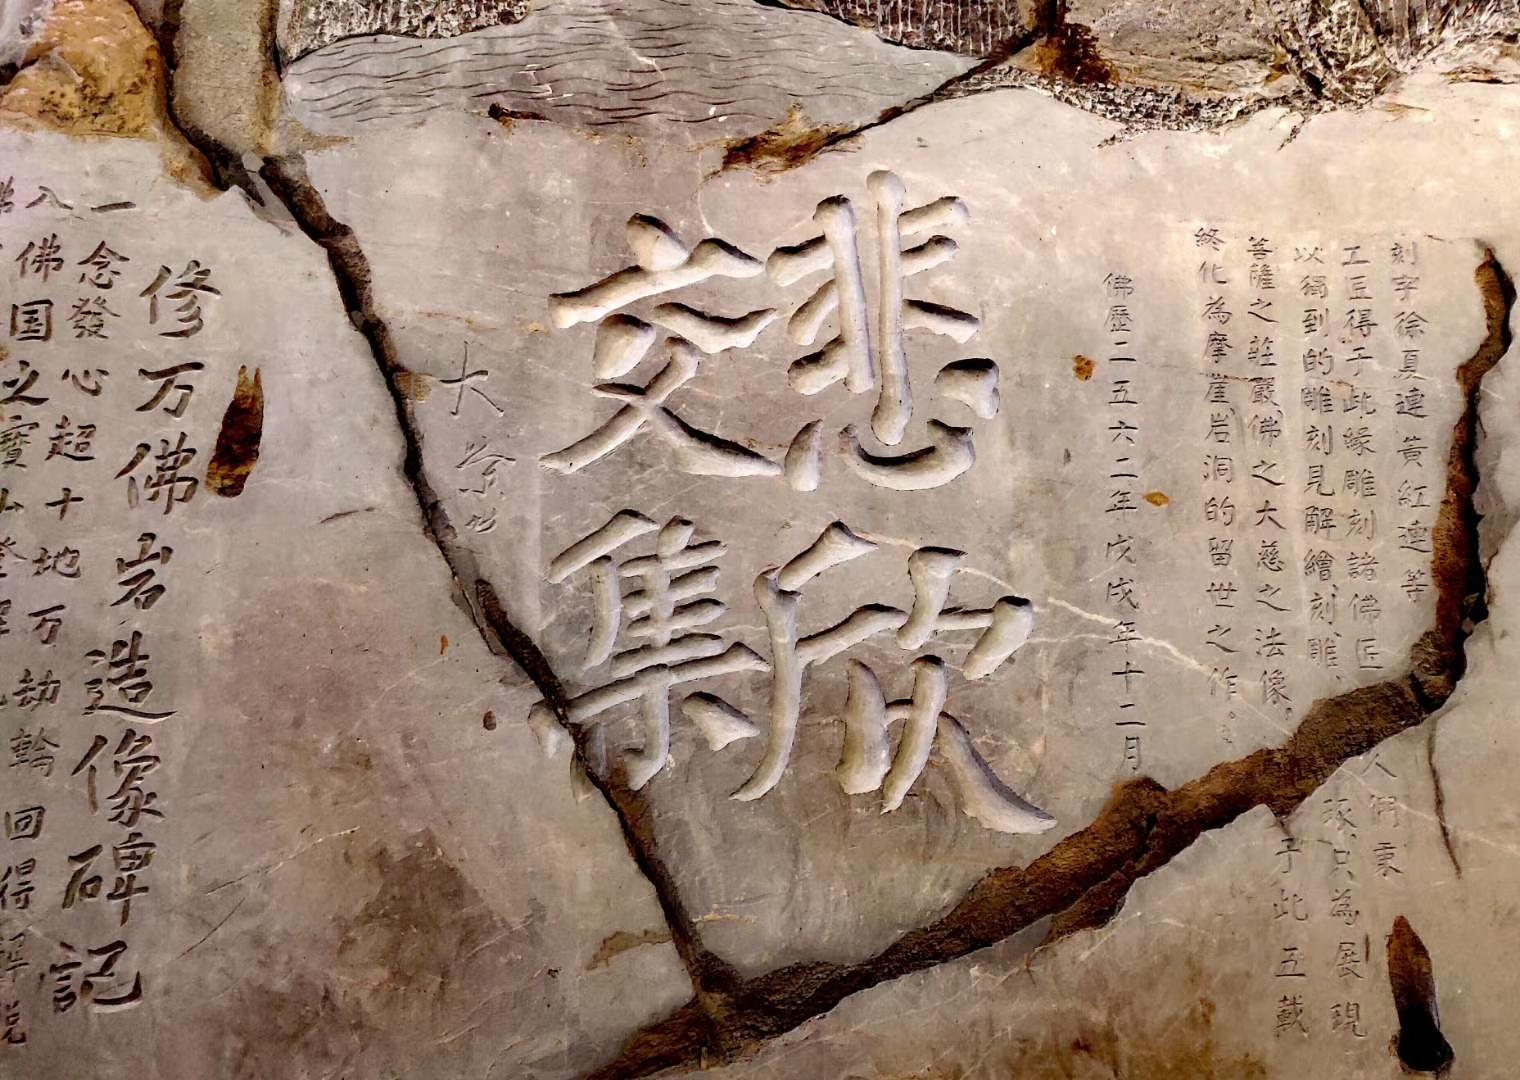 刻字徐夏連黃紅連等
工匠得于此緣雕刻諸佛匠人們秉
以獨到的雕刻見解繪刻雕、琢、只為展現
菩薩之莊嚴佛之大慈之法像。于此五載
終化為摩崖岩洞的留世之作。
佛歷二五六二年戊戌年十二月
悲欣
交集
大
修万佛岩造像碑記
一念發心超十地万劫輪回得
佛国之寶